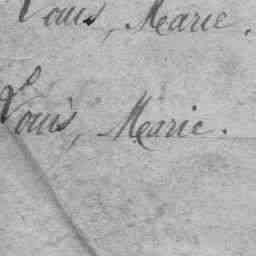 Louis, Marie.
Louis, Marie.